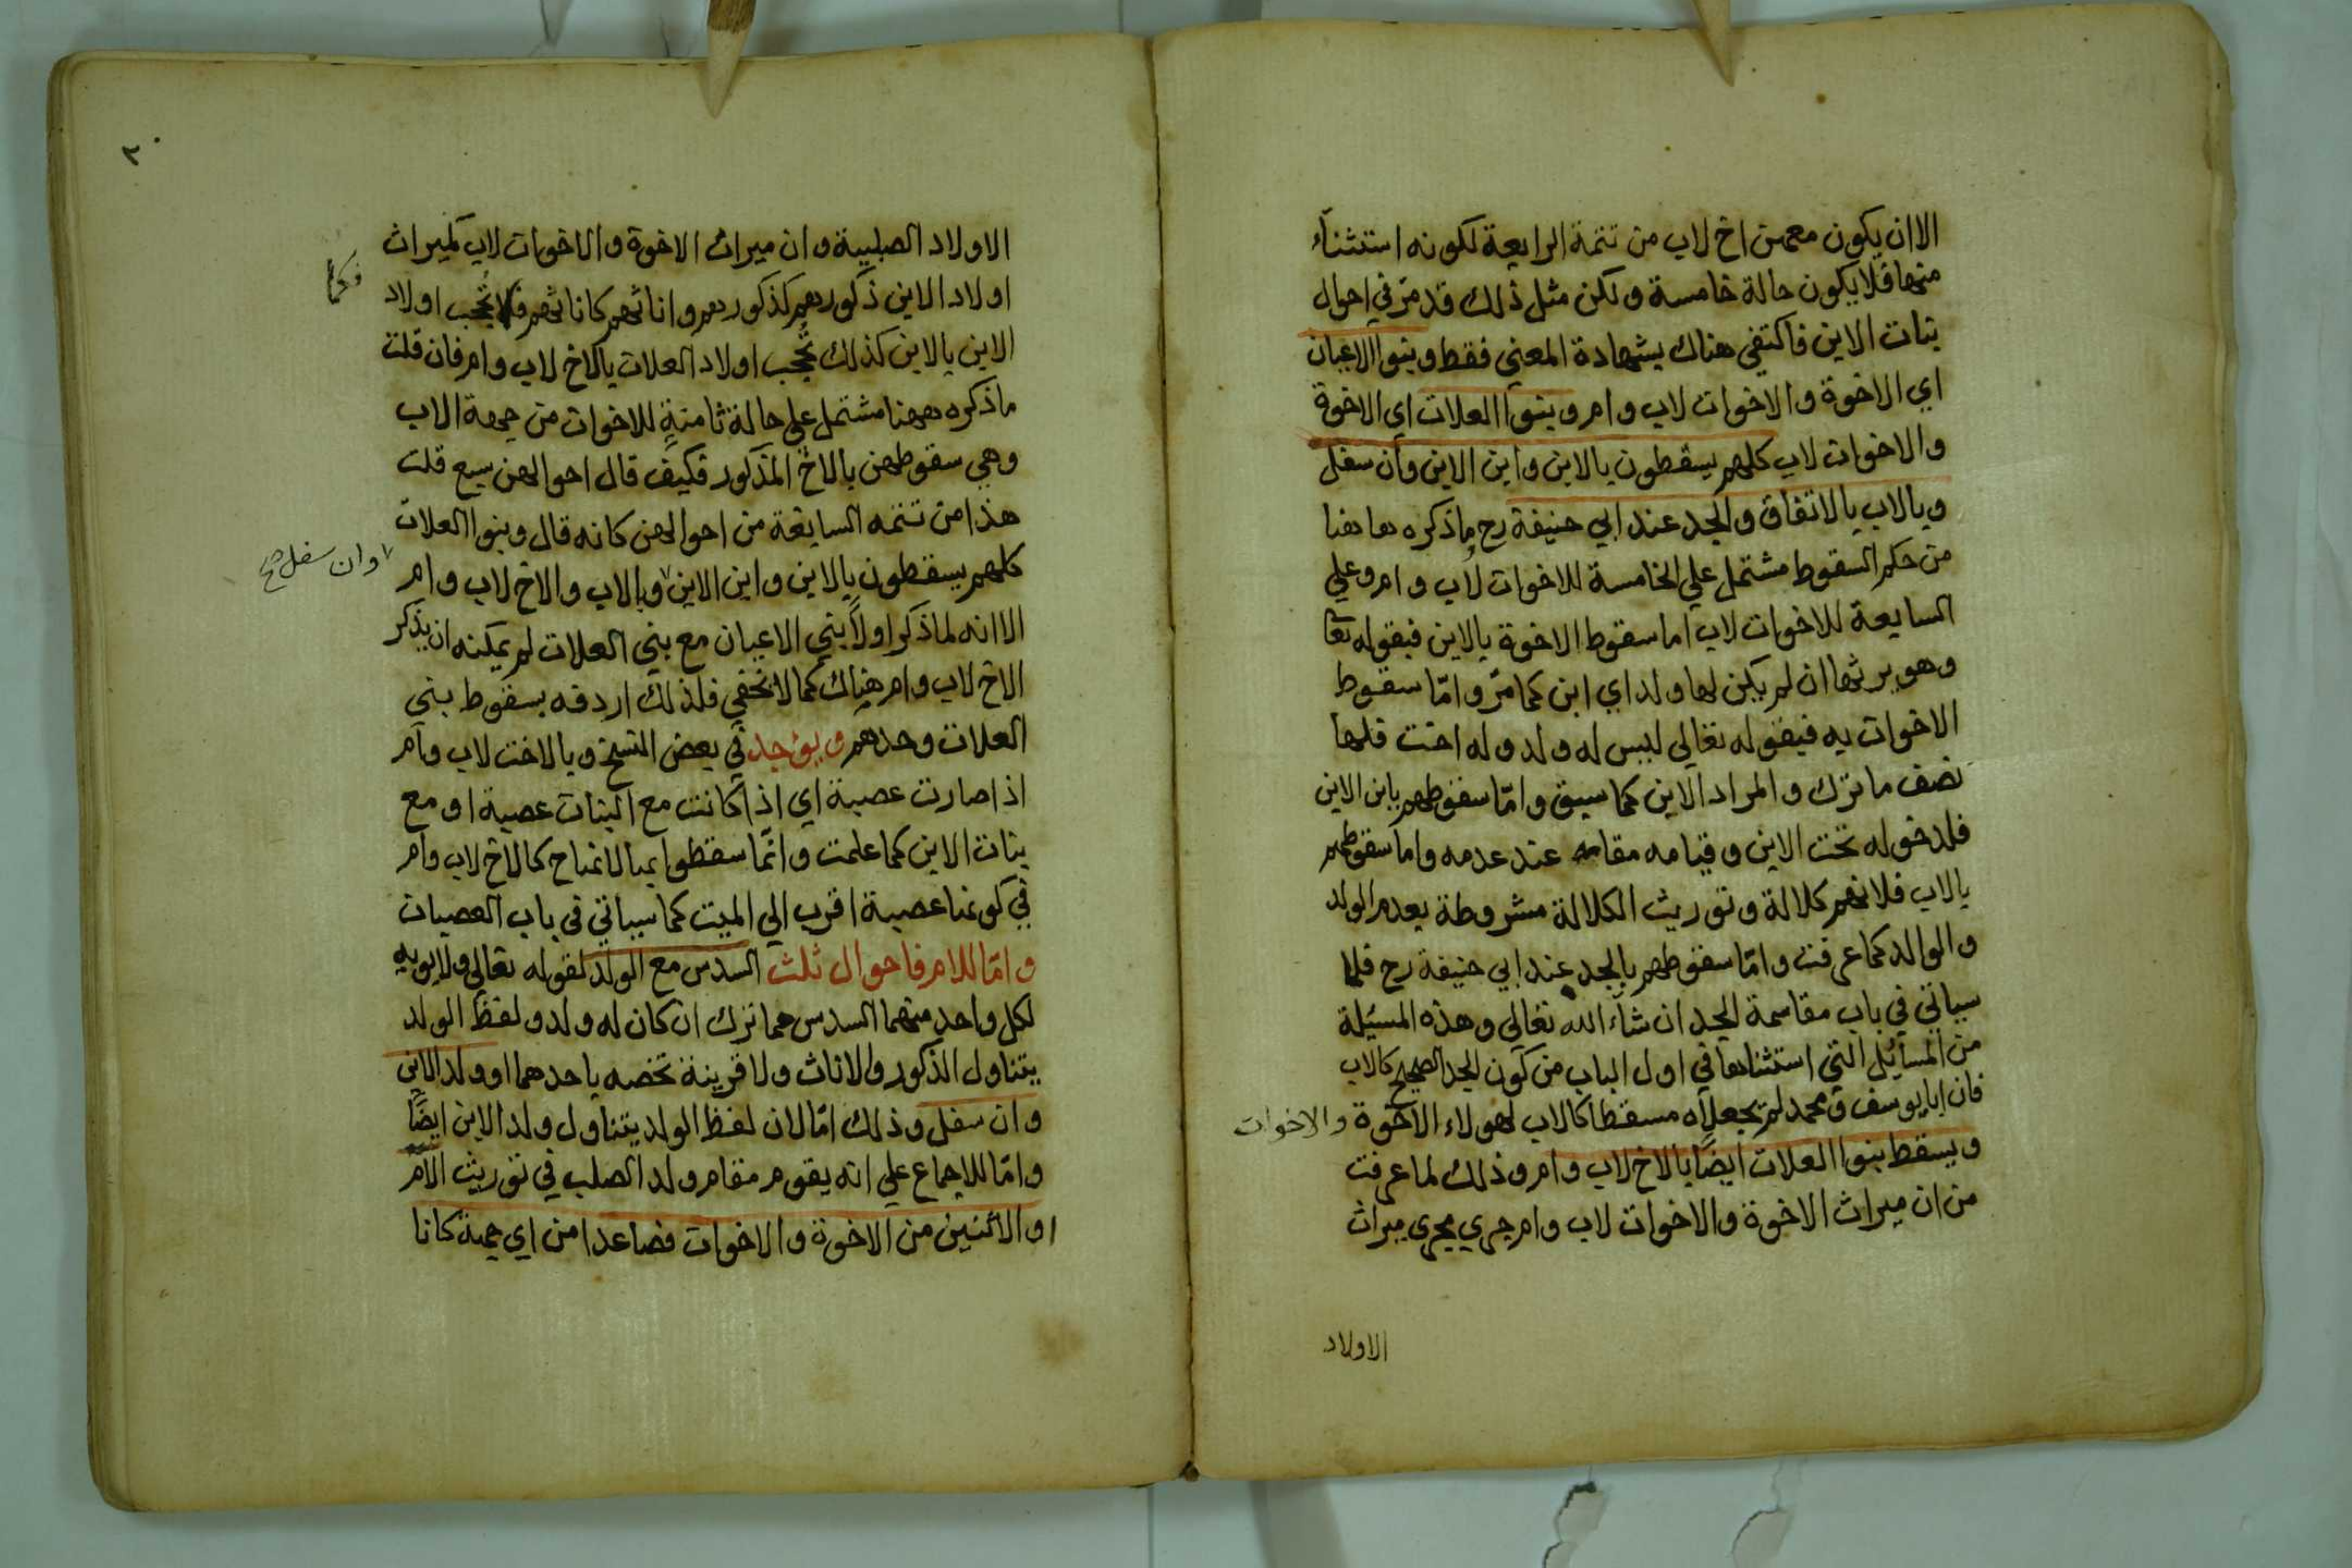 الا ان يكون معهن اخ لاب من تتمة الرابعة لكونه استثناء
منها فلا يكون حالة خامسة ولكن مثل ذلك قد مرّ في احوال
بنات الابن فاكتفى هناك بشهادة المعني فقط وبنوا الاعيان
اي الاخوة والاخوات لاب وام وبنوا العلات اي الاخوة
والاخوات لاب كلهم يسقطون بالابن وابن الابن وان سفل
وبالاب بالاتفاق والجد عند ابي حنيفة رح ما ذكره هاهنا
من حكم السقوط مشتمل علي الخامسة للاخوات لاب وام وعلي
السابعة للاخوات لاب اما سقوط الاخوة بالابن فبقوله تعا
وهو يرثها ان لم يكن لها ولد اي ابن كما مرّ وامّا سقوط
الاخوات به فبقوله تعالي ليس له ولد وله اخت فلها
نصف ما ترك والمراد الابن كما سبق وامّا سقوطهم بابن الابن
فلدخوله تحت الابن وقيامه مقامه عند عدمه واما سقوطهم
بالاب فلانهم كلالة وتوريث الكلالة مشروطة بعدم الولد
والوالد كما عرفت وامّا سقوطهم بالجد عند ابي حنيفة رح فلما
سياتي في باب مقاسمة الجد ان شاء الله تعالي وهذه المسئلة
من المسائل التي استثناها في اول الباب من كون الجد الصحيح كالاب
فان ابا يوسف ومحمد لم يجعلاه مسقطا كالاب لهولاء الاخوة والاخوات
ويسقط بنوا العلات ايضًا بالاخ لاب وام وذلك لما عرفت
من ان ميراث الاخوة والاخوات لاب وام جري مجرى ميراث
الاولاد
٢٠
الاولاد الصلبية وان ميراث الاخوة والاخوات لاب كميراث
اولاد الابن ذكورهم كذكورهم واناثهم كاناثهم فلا تحجب اولاد
فكما
الابن بالابن كذلك تحجب اولاد العلات بالاخ لاب وام فان قلت
ما ذكره ههنا مشتمل علي حالة ثامنة للاخوات من جهة الاب
وهي سقوطهن بالاخ المذكور فكيف قال احوالهن سبع قلت
هذا من تتمه السابعة من احوالهن كانه قال وبنوا العلات
كلهم يسقطون بالابن وابن الابن وبالاب والاخ لاب وام
وان سفل صح
الا انه لما ذكر اولاً بني الاعيان مع بني العلات لم يمكنه ان يذكر
الاخ لاب وام هناك كما لا تخفي فلذلك اردفه بسقوط بني
العلات وحدهم ويوجد في بعض النسخ وبالاخت لاب وام
اذا صارت عصبة اي اذا كانت مع البنات عصبة او مع
بنات الابن كما علمت وانّما سقطوا بها لانها ح كالاخ لاب وام
في كونها عصبة اقرب الي الميت كما سياتي في باب العصبات
وامّا للام فاحوال ثلث السدس مع الولد لقوله تعالي ولابويه
لكل واحد منهما السدس مما ترك ان كان له ولد ولفظ الولد
يتناول الذكور والاناث ولا قرينة تخصه باحدهما او ولد الابن
وان سفل وذلك امّا لان لفظ الولد يتناول ولد الابن ايضًا
وامّا للاجماع علي انه يقوم مقام ولد الصلب في توريث الام
او الاثنين من الاخوة والاخوات فصاعدا من اي جهة كانا